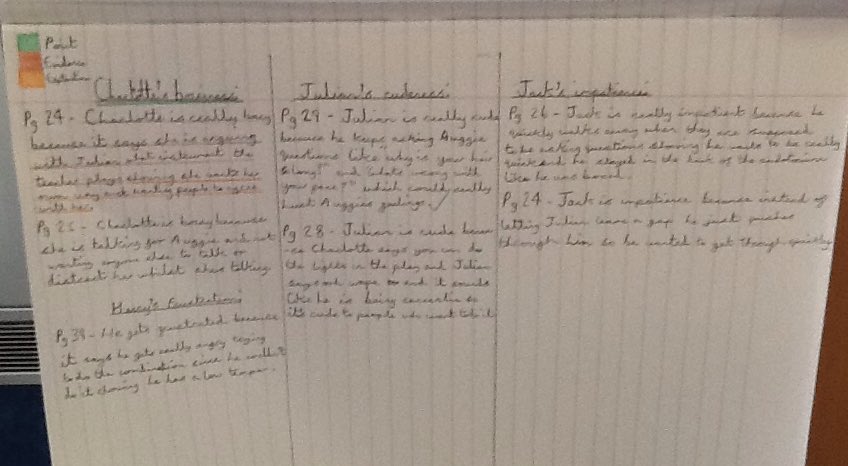 Point
Evidence
Explanation
Charlotte's bossiness
Pg 24 - Charlotte is really bossy
because it says she is arguing
with Julian what instrument the
teacher plays showing she wants her
own way and wanting people to agree
with her.
Pg 25 - Charlotte is bossy because
she is talking for Auggie and not
wanting anyone else to talk or
distract her whilst shes talking.
Henry's frustrations
Pg 38 - He gets frustrated because
it says he gets really angry trying
to do the combination since he couldn't
do it showing he has a low temper.
Julian's rudeness
Pg 29 - Julian is really rude
because he keeps asking Auggie
questions like "why is your hair
so long?" and "whats wrong with
your face?" which could really
hurt Auggies feelings.
Pg 28 - Julian is rude becau
-se Charlotte says you can do
the lights in the play and Julian
says and it sounds
like he is being so
its rude to people who want to do it
Jack's impatience
Pg 26 - Jack is really impatient because he
quickly walks away when they are supposed
to be asking questions showing he wants to be really
quick and he stayed in the back of the auditorium
like he was bored.
Pg 24 - Jack is impatience because instead of
letting Julian leave a gap he just pushes
through him so he wanted to get through quickly